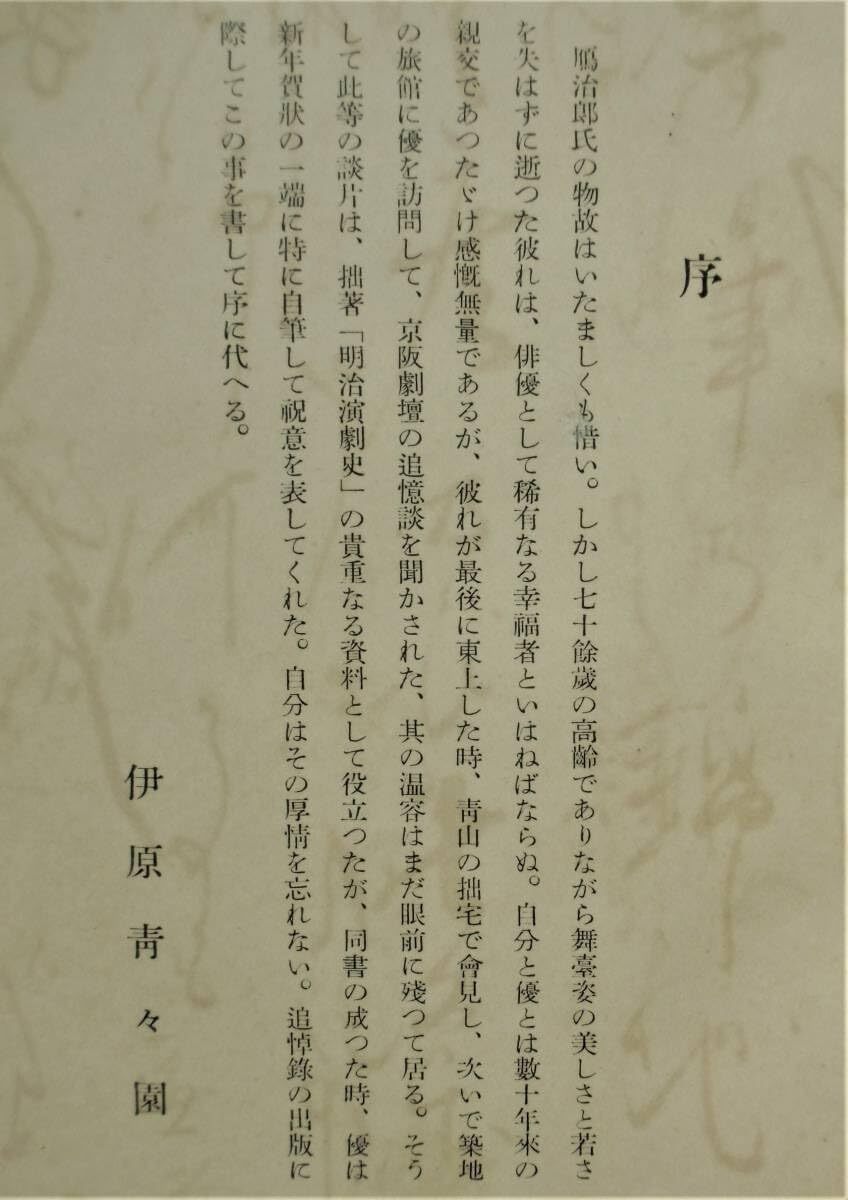 序
鴈治郎氏の物故はいたましくも惜い。しかし七十餘歲の高齡でありながら舞臺姿の美しさと若さ
を失はずに逝つた彼れは、俳優として稀有なる幸福者といはねばならぬ。自分と優とは數十年來の
親交であつたゞけ感慨無量であるが、彼れが最後に東上した時、靑山の拙宅で會見し、次いで築地
の旅館に優を訪問して、京阪劇壇の追憶談を聞かされた、其の温容はまだ眼前に殘つて居る。そう
して此等の談片は、拙著「明治演劇史」の貴重なる資料として役立つたが、同書の成つた時、優は
新年賀狀の一端に特に自筆して祝意を表してくれた。自分はその厚情を忘れない。追悼錄の出版に
際してこの事を書して序に代へる。
伊原靑々園